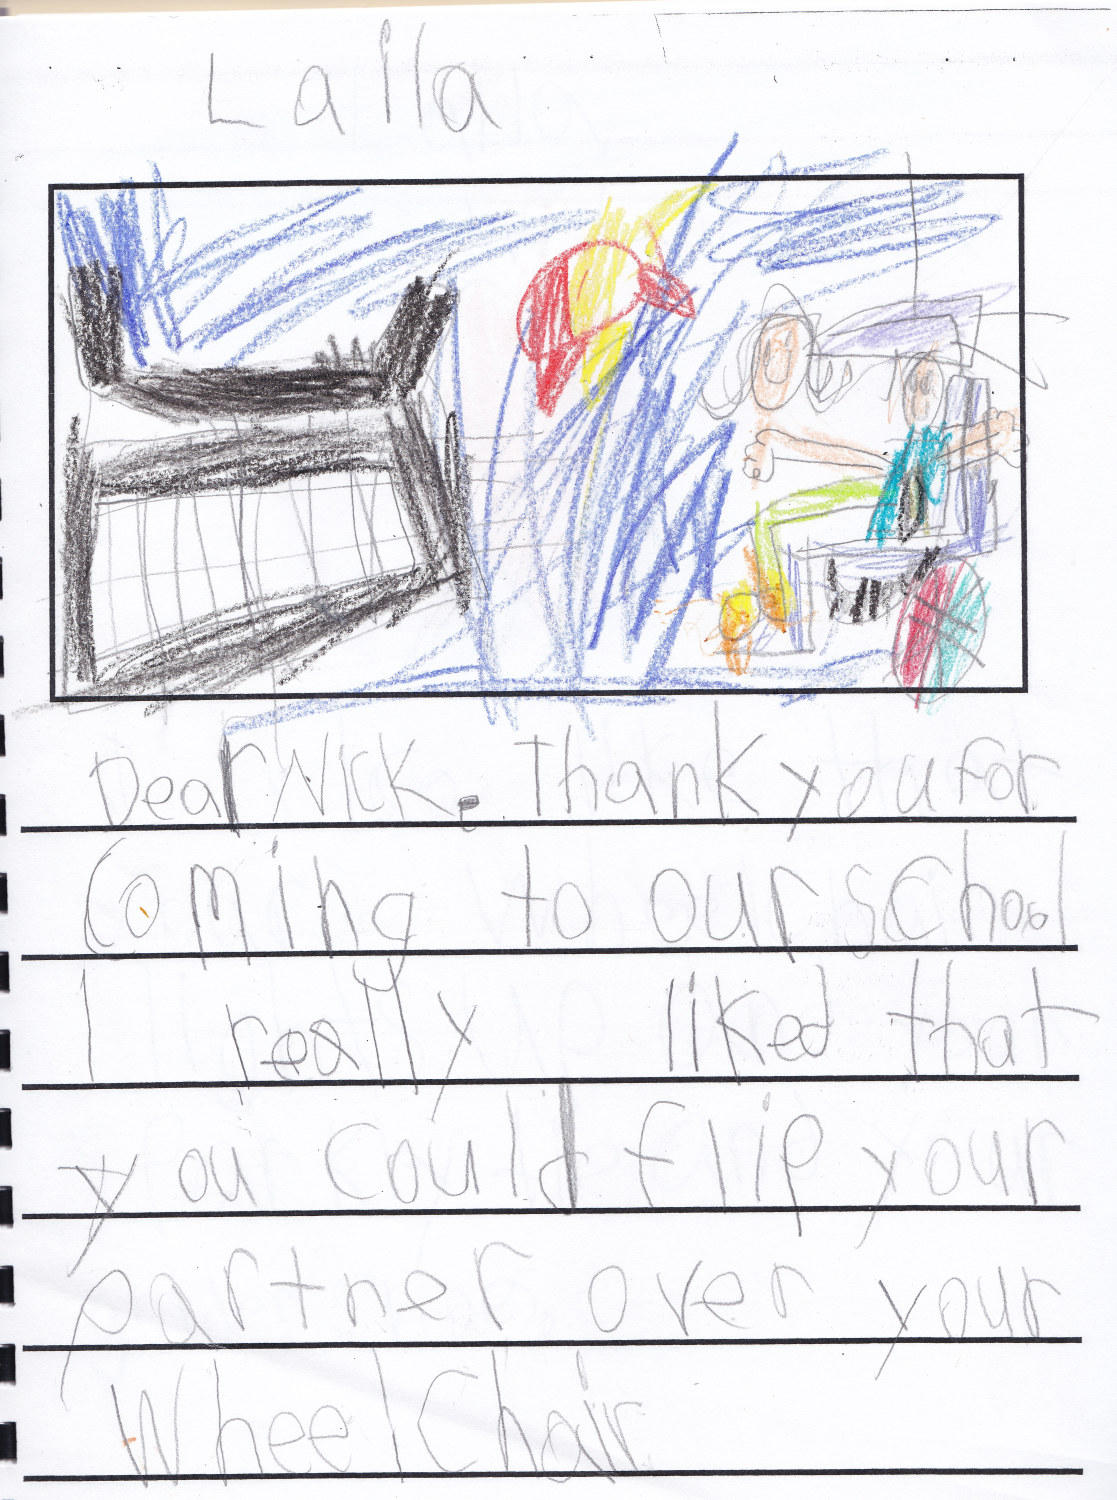 Laila
Dear Nick. Thank you for
Coming to our school
I really liked that
you could flip your
partner over your
WheelChair